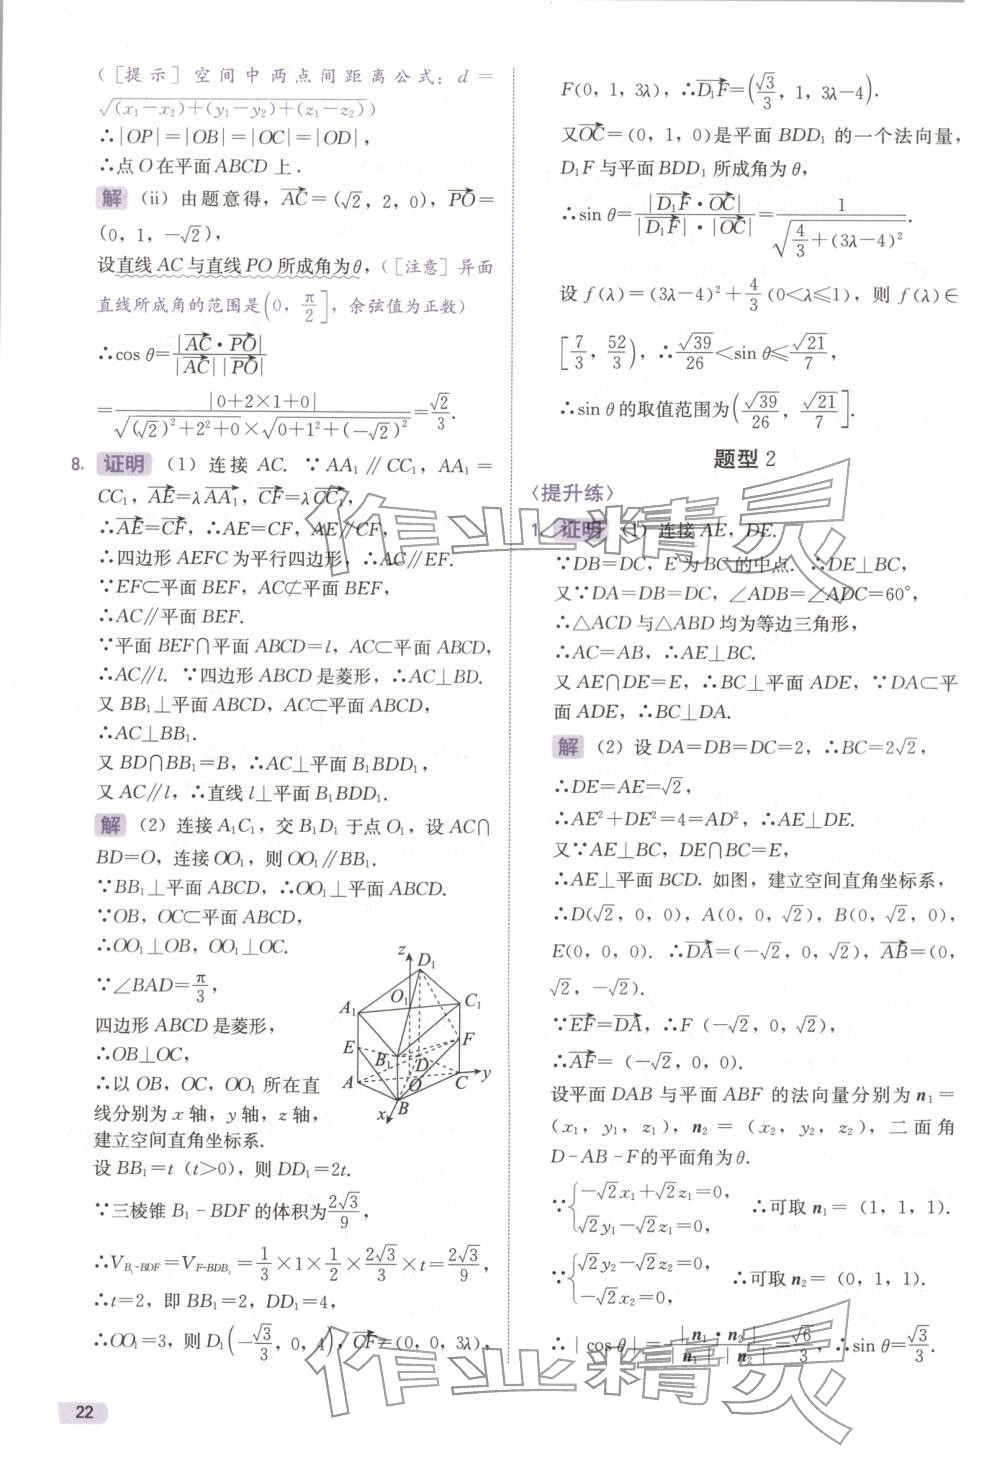 (［提示］空间中两点间距离公式：d=
√(x₁−x₂)+(y₁−y₂)+(z₁−z₂))
∴|OP|=|OB|=|OC|=|OD|，
∴点O在平面ABCD上．
解 (ii) 由题意得，AC→=(√2，2，0)，PO→=
(0，1，−√2)，
设直线AC与直线PO所成角为θ，(［注意］异面
直线所成角的范围是(0，π/2]，余弦值为正数)
∴cos θ=|AC→·PO→|/(|AC→||PO→|)
=|0+2×1+0|/(√((√2)²+2²+0)×√(0+1²+(−√2)²))=√2/3．
8. 证明 (1) 连接AC．∵AA₁∥CC₁，AA₁=
CC₁，AE→=λAA₁→，CF→=λCC₁→，
∴AE→=CF→，∴AE=CF，AE∥CF，
∴四边形AEFC为平行四边形，∴AC∥EF．
∵EF⊂平面BEF，AC⊄平面BEF，
∴AC∥平面BEF．
∵平面BEF∩平面ABCD=l，AC⊂平面ABCD，
∴AC∥l．∵四边形ABCD是菱形，∴AC⊥BD．
又BB₁⊥平面ABCD，AC⊂平面ABCD，
∴AC⊥BB₁．
又BD∩BB₁=B，∴AC⊥平面B₁BDD₁，
又AC∥l，∴直线l⊥平面B₁BDD₁．
解 (2) 连接A₁C₁，交B₁D₁于点O₁，设AC∩
BD=O，连接OO₁，则OO₁∥BB₁．
∵BB₁⊥平面ABCD，∴OO₁⊥平面ABCD．
∵OB，OC⊂平面ABCD，
∴OO₁⊥OB，OO₁⊥OC．
∵∠BAD=π/3，
四边形ABCD是菱形，
∴OB⊥OC，
∴以OB，OC，OO₁所在直
线分别为x轴，y轴，z轴，
建立空间直角坐标系．
z
D₁
O₁
A₁
C₁
E
B₁
F
D
A
O
C
y
x
B
设BB₁=t (t>0)，则DD₁=2t．
∵三棱锥B₁−BDF的体积为2√3/9，
∴V_{B₁−BDF}=V_{F−BDB₁}=1/3×1×1/2×2√3/3×t=2√3/9，
∴t=2，即BB₁=2，DD₁=4，
∴OO₁=3，则D₁(−√3/3，0，4)，CF→=(0，0，3λ)，
22
F(0，1，3λ)，∴D₁F→=(√3/3，1，3λ−4)．
又OC→=(0，1，0)是平面BDD₁的一个法向量，
D₁F与平面BDD₁所成角为θ，
∴sin θ=|D₁F→·OC→|/(|D₁F→|·|OC→|)=1/√(4/3+(3λ−4)²)．
设f(λ)=(3λ−4)²+4/3(0<λ≤1)，则f(λ)∈
[7/3，52/3)，∴√39/26<sin θ≤√21/7，
∴sin θ的取值范围为(√39/26，√21/7]．
题型2
〈提升练〉
1. 证明 (1) 连接AE，DE．
∵DB=DC，E为BC的中点．∴DE⊥BC，
又∵DA=DB=DC，∠ADB=∠ADC=60°，
∴△ACD与△ABD均为等边三角形，
∴AC=AB，∴AE⊥BC．
又AE∩DE=E，∴BC⊥平面ADE，∵DA⊂平
面ADE，∴BC⊥DA．
解 (2) 设DA=DB=DC=2，∴BC=2√2，
∴DE=AE=√2，
∴AE²+DE²=4=AD²，∴AE⊥DE．
又∵AE⊥BC，DE∩BC=E，
∴AE⊥平面BCD．如图，建立空间直角坐标系，
∴D(√2，0，0)，A(0，0，√2)，B(0，√2，0)，
E(0，0，0)．∴DA→=(−√2，0，√2)，AB→=(0，
√2，−√2)．
∵EF→=DA→，∴F(−√2，0，√2)，
∴AF→=(−√2，0，0)．
设平面DAB与平面ABF的法向量分别为n₁=
(x₁，y₁，z₁)，n₂=(x₂，y₂，z₂)，二面角
D−AB−F的平面角为θ．
∵{−√2x₁+√2z₁=0，√2y₁−√2z₁=0，∴可取n₁=(1，1，1)．
∵{√2y₂−√2z₂=0，−√2x₂=0，∴可取n₂=(0，1，1)．
∴|cos θ|=|n₁·n₂|/(|n₁||n₂|)=√6/3，∴sin θ=√3/3．
作业精灵
作业精灵